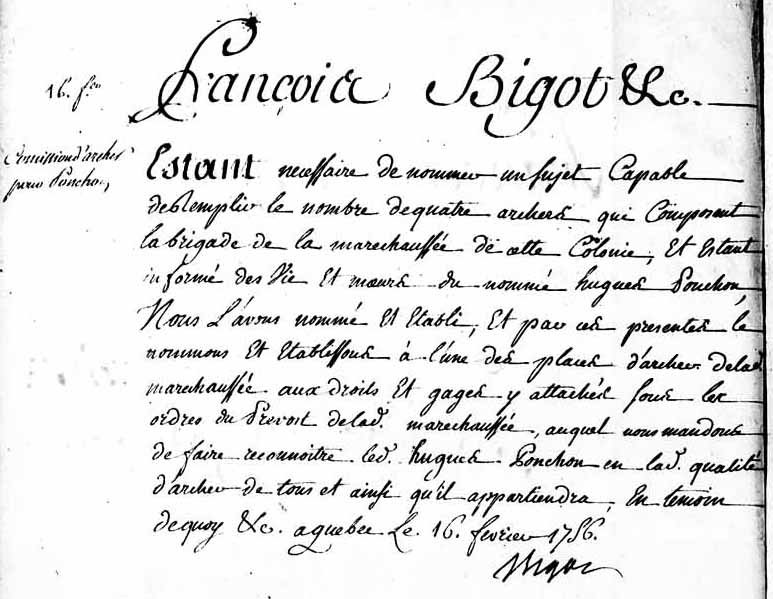 16. fer
François Bigot &c.
Comission d'archer
pour Ponchon,
Estant necessaire de nommer un sujet Capable
de Remplir le nombre de quatre archers qui Composent
la brigade de la marechaussée de cette Colonie, Et Estant
informé des Vie Et moeurs du nommé hugues Ponchon,
Nous L'avons nommé Et Etabli, Et par ces presentes le
nommons Et Etablissons à l'une des places d'archer de lad.
marechaussée aux droits Et gages y attachés sous les
ordres du Prevost de lad. marechaussée, auquel nous mandons
de faire reconnoitre led. hugues Ponchon en lad. qualité
d'archer de tous et ainsi qu'il appartiendra, En temoin
de quoy &c. a quebec Le 16. fevrier 1756.
Bigot